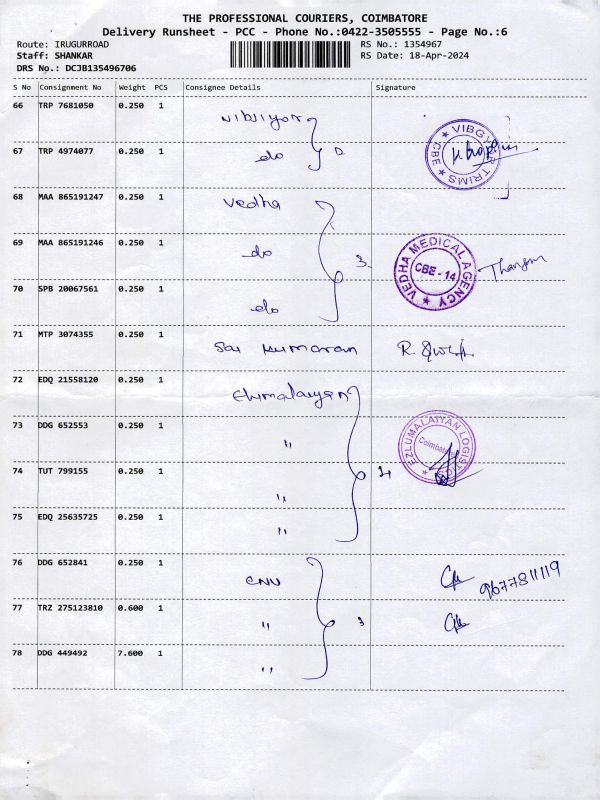 THE PROFESSIONAL COURIERS, COIMBATORE
Delivery Runsheet - PCC - Phone No.:0422-3505555 - Page No.:6
Route: IRUGURROAD RS No.: 1354967
Staff: SHANKAR RS Date: 18-Apr-2024
DRS No.: DCJB135496706
S No Consignment No Weight PCS Consignee Details Signature
66 TRP 7681050 0.250 1
67 TRP 4974077 0.250 1 do
VIBGY TRIMS CBE
68 MAA 865191247 0.250 1 Vedha
69 MAA 865191246 0.250 1 do 3
VEDHA MEDICAL AGENCY CBE - 14
70 SPB 20067561 0.250 1 do
71 MTP 3074355 0.250 1 Sai Kumaran
72 EDQ 21558120 0.250 1
73 DDG 652553 0.250 1 "
EZLUMALAIYAN LOGISTIC Coimbat
74 TUT 799155 0.250 1 "
75 EDQ 25635725 0.250 1 "
76 DDG 652841 0.250 1 CNN 9677811119
77 TRZ 275123810 0.600 1 " 3
78 DDG 449492 7.600 1 "